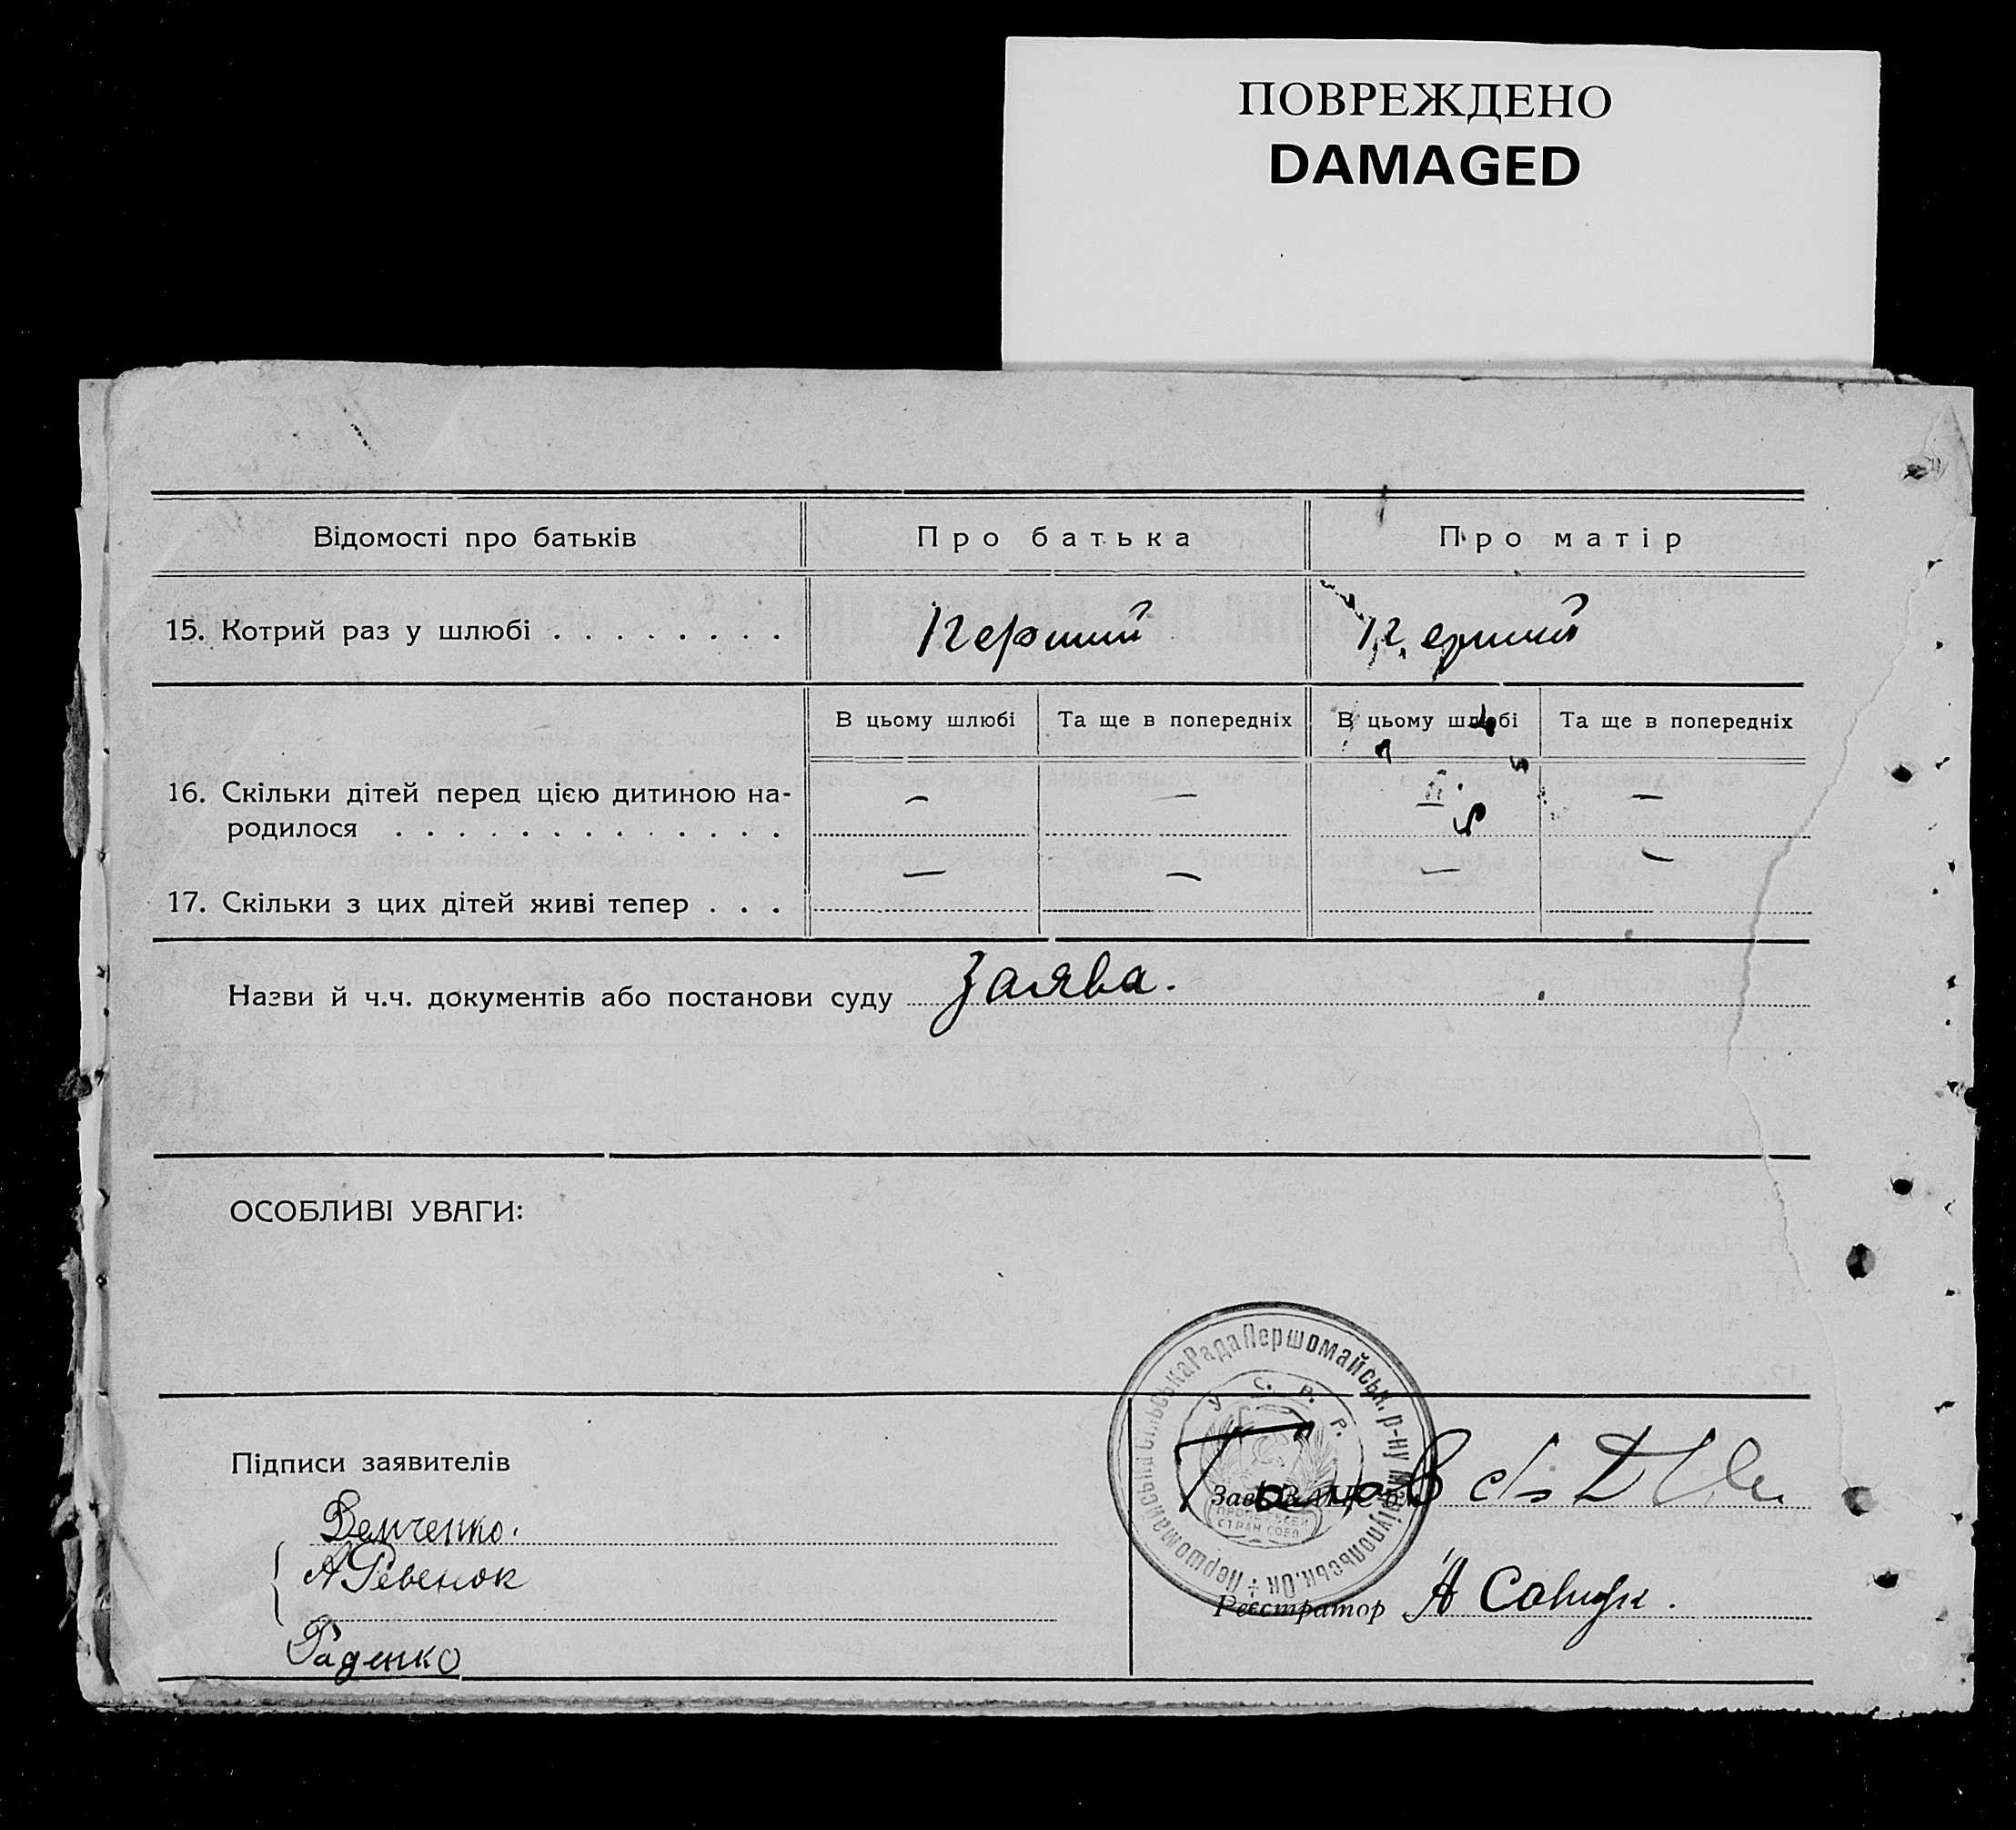 ПОВРЕЖДЕНО
DAMAGED
Відомості про батьків
Про батька
Про матір
15. Котрий раз у шлюбі . . . . . . . .
Перший
Перший
В цьому шлюбі
Та ще в попередніх
В цьому шлюбі
Та ще в попередніх
16. Скільки дітей перед цією дитиною на-
родилося . . . . . . . . . . . . . .
—
—
—
—
17. Скільки з цих дітей живі тепер . . .
—
—
—
—
Назви й ч.ч. документів або постанови суду Заява.
ОСОБЛИВІ УВАГИ:
Першомайська Сільська Рада Першомайськ. р-ну Маріупольськ. Ок.
У. С. Р. Р.
Підписи заявителів
Зав. ЗАГС'ом
Демченко.
А Ревенок
Реєстратор А
Раденко